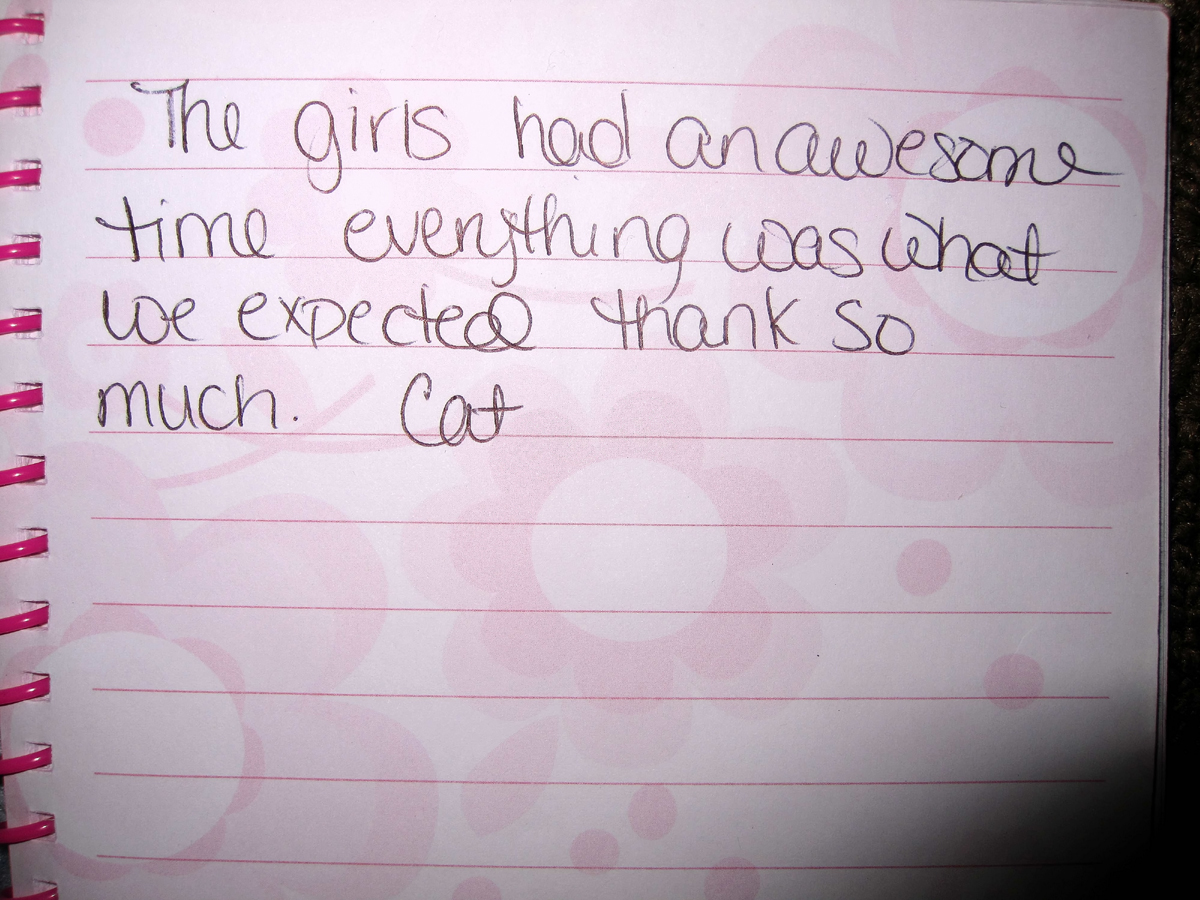 The girls had an awesome
time everything was what
we expected thank so
much. Cat